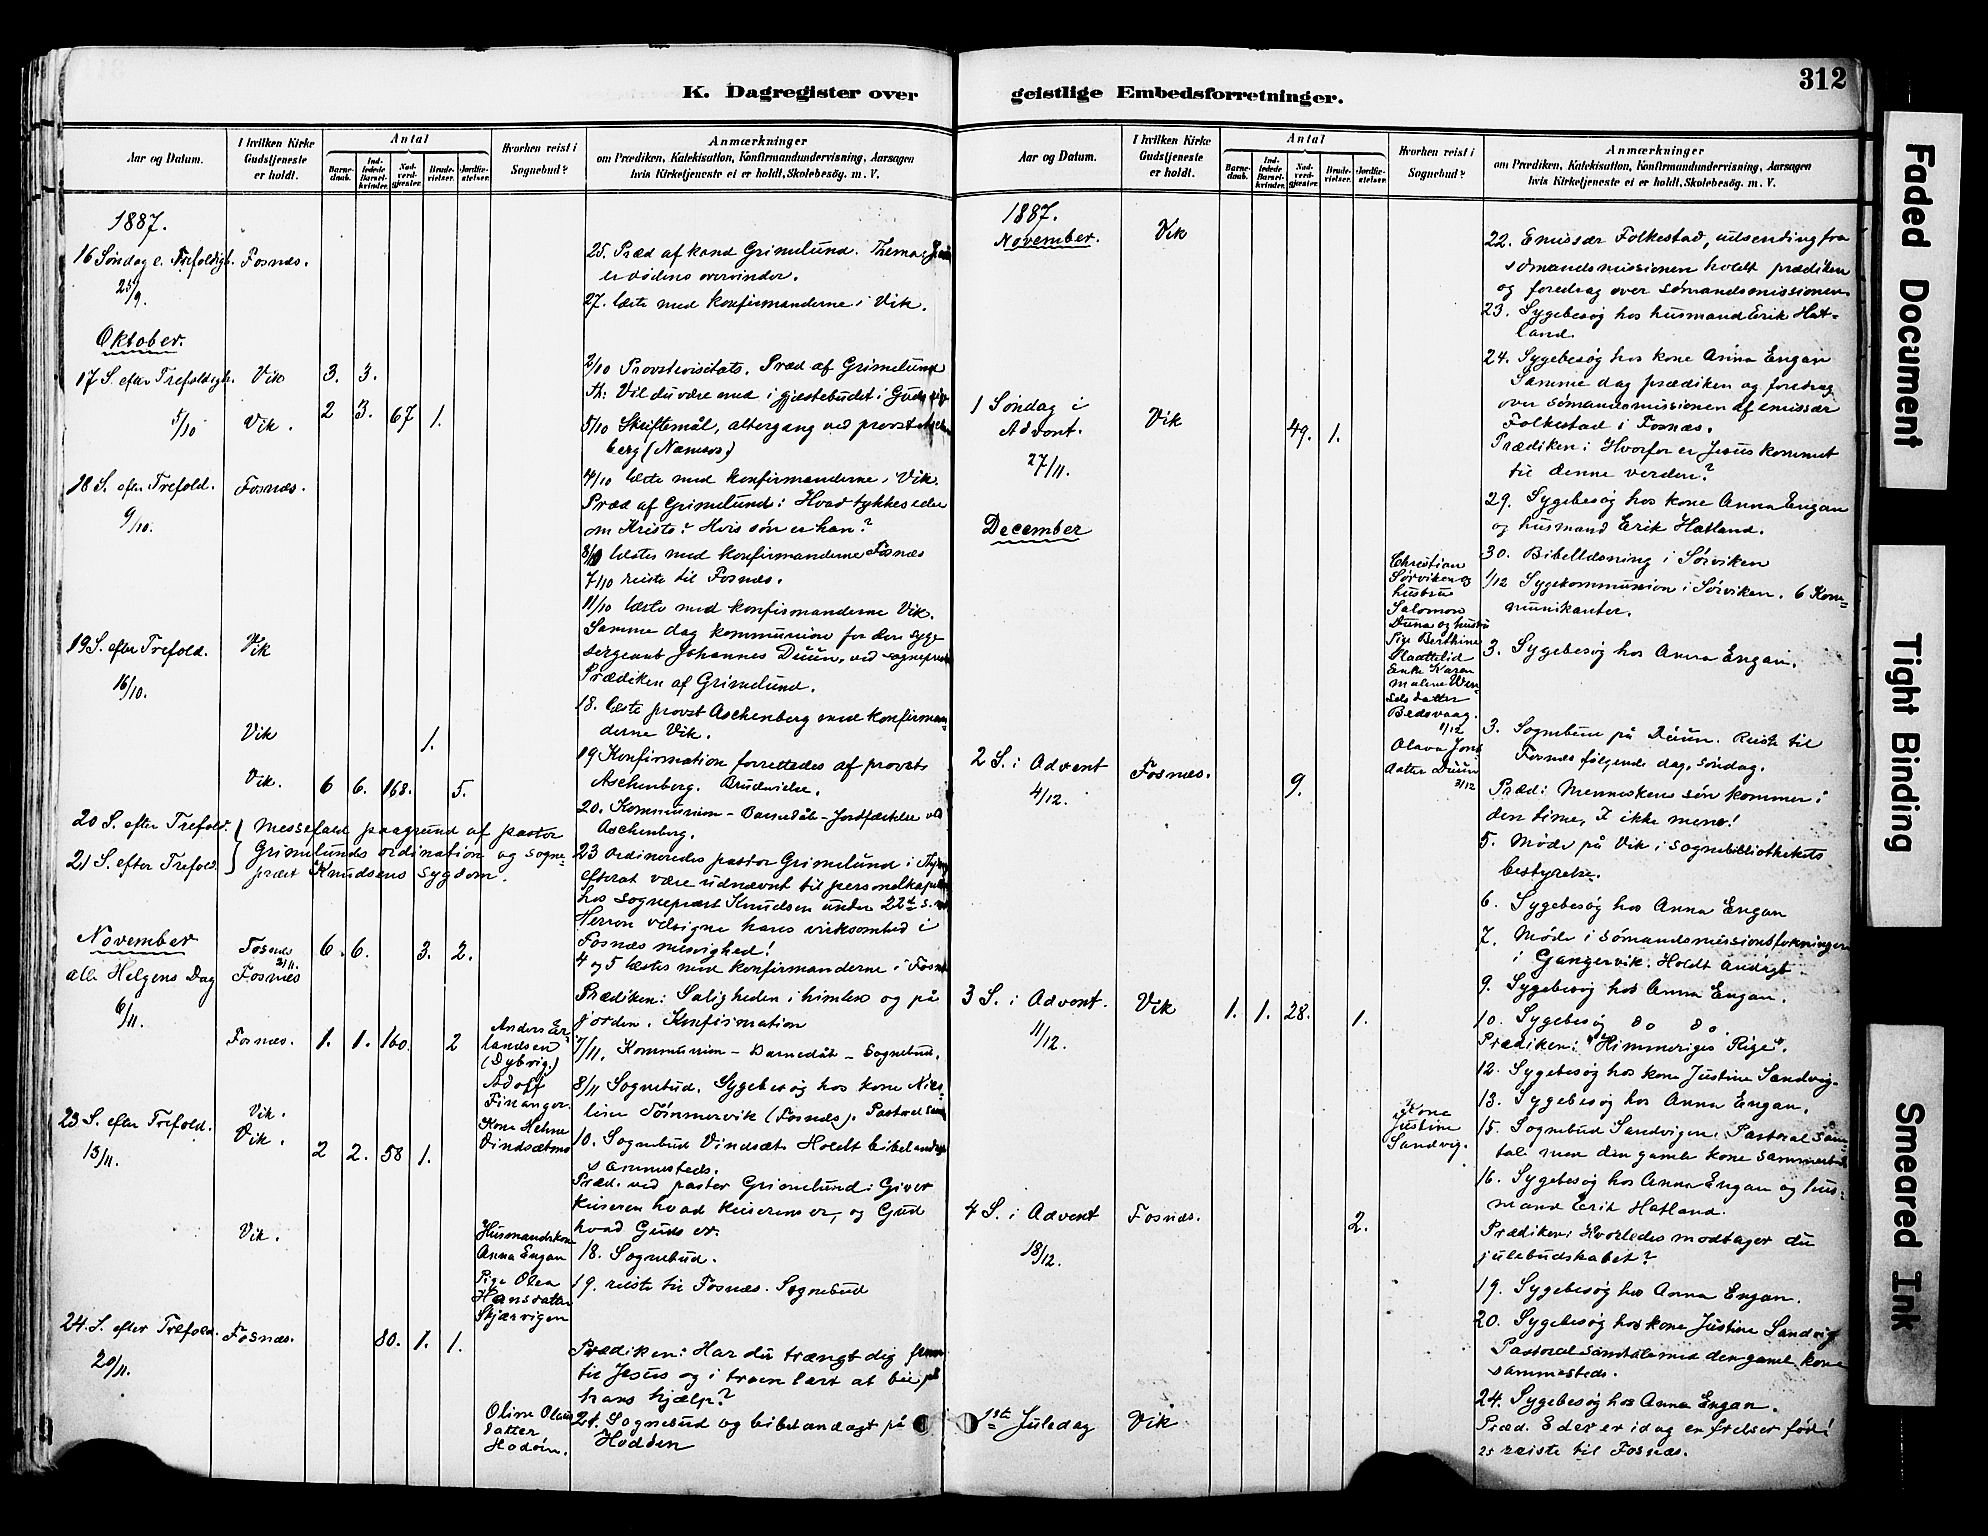 K. Dagregister over
Aar og Datum.
I hvilken Kirke
Gudstjeneste
er holdt.
Antal
Barne-
daab.
Ind-
ledede
Barsel-
kvinder.
Nad-
verd-
gjester.
Brude-
vielser.
Jordfæ-
stelser.
Hvorhen reist i
Sognebud?
Anmærkninger
om Prædiken, Katekisation, Konfirmandundervisning, Aarsagen
hvis Kirketjeneste ei er holdt, Skolebesög. m. V.
1887.
16 Søndag e. Trefoldigh. Fosnæs.
25/9.
25. Præd af kand Grimelund. Thema:
er dødens overvinder.
27. læste med konfirmanderne i Vik.
Oktober.
17 S. efter Trefoldigh. Vik 3. 3.
2/10 Provstevisitats. Præd af Grimelund
Th: Vil du være med i gjæstebudet i Guds
5/10 Vik. 2 3. 67 1.
5/10 Skriftemål, altergang ved provst
berg (Namsos)
18 S. efter Trefold. Fosnæs.
9/10.
4/10 læste med konfirmanderne i Vik.
Præd af Grimelund: Hvad tykkes eder
om Kristo? Hvis søn er han?
8/10 læstes med konfirmanderne Fosnæs
7/10 reiste til Fosnæs.
11/10 læste med konfirmanderne Vik.
Samme dag kommunion for den syge
19 S. efter Trefold. Vik
16/10.
sergeant Johannes Duun, ved sognepræst
Prædiken af Grimelund.
18. læste provst Aschenberg med konfirman-
derne Vik.
Vik 1.
19 Konfirmation forrettedes af provst
Aschenberg. Brudevielse.
Vik. 6 6. 168. 5.
20. Kommunion - Barnedåb - Jordfæstelse ved
Aschenberg.
20 S. efter Trefold.
21 S. efter Trefold.
Messefald paagrund af pastor
Grimelunds ordination og sogne-
præst Knudsens sygdom.
23 ordineredes pastor Grimelund i
efterat være udnævnt til personelkapellan
hos sognepræst Knudsen under 22de
Herren velsigne hans virksomhed i
Fosnæs menighed!
November
Fosnæs 6. 6. 3. 2.
4 og 5 læstes med konfirmanderne i Fosnæs
alle Helgens Dag Fosnæs
6/11.
Prædiken: Saligheden i himlen og på
jorden. Konfirmation
Fosnæs. 1. 1. 160. 2
Anders Er-
landsen
(Dybvig.)
7/11. Kommunion - Barnedåb - Sognebud.
Adolf
Finanger.
8/11 Sognebud. Sygebesøg hos kone
line Tømmervik (Fosnæs).
Vik.
23 S. efter Trefold. Vik. 2 2. 58 1.
13/11.
Kone Helene
Vindsætmo
10. Sognebud Vindsæt. Holdt bibelandagt
sammesteds.
Præd. ved pastor Grimelund: Giver
keiseren hvad keiserens er, og Gud
hvad Guds er.
Vik.
Husmandskone
Anna Engan
18. Sognebud.
Pige Olea
Hansdatter
Skjærvigen
19. reiste til Fosnæs. Sognebud
24. S. efter Trefold. Fosnæs. 80. 1. 1.
20/11.
Prædiken: Har du trængt dig frem
til Jesus og i troen lært at bie på
hans hjælp?
Oline Olaus
datter
Hodøen.
21. Sognebud og bibelandagt på
Hodöen
geistlige Embedsforretninger.
312
Aar og Datum.
I hvilken Kirke
Gudstjeneste
er holdt.
Antal
Barne-
daab.
Ind-
ledede
Barsel-
kvinder.
Nad-
verd-
gjester.
Brude-
vielser.
Jordfæ-
stelser.
Hvorhen reist i
Sognebud?
Anmærkninger
om Prædiken, Katekisation, Konfirmandundervisning, Aarsagen
hvis Kirketjeneste ei er holdt, Skolebesög. m. V.
1887.
November. Vik
22. Emissær Folkestad, udsending fra
sømandsmissionen holdt prædiken
og foredrag over sømandsmissionen.
23. Sygebesøg hos husmand Erik Hat-
land.
24. Sygebesøg hos kone Anna Engan
Samme dag prædiken og foredrag
over sømandsmissionen af emissær
Folkestad i Fosnæs.
1 Søndag i
Advent.
27/11.
Vik 49. 1.
Prædiken: Hvorfor er Jesus kommet
til denne verden?
29. Sygebesøg hos kone Anna Engan
og husmand Erik Hatland.
December
30. Bibellæsning i Sørviken
Christian
Sørviken og
hustru
Salomon
Duna og hustru
Pige Berthine
Slaattelid
Enke Karen
Malene Wen-
selsdatter
Bedsvaag.
1/12
1/12 Sygekommunion i Sørviken. 6 Kom-
munikanter.
3. Sygebesøg hos Anna Engan.
Olava Jons
datter Duun
3/12
3. Sognebud på Duun. Reiste til
Fosnæs følgende dag, søndag.
2 S. i Advent Fosnæs. 9.
4/12.
Præd: Menneskens søn kommer i
den time, I ikke mene!
5. Møde på Vik i sognebibliothekets
bestyrelse.
6. Sygebesøg hos Anna Engan
7. Møde i sømandsmissionsforeningen
i Gangervik. Holdt andagt
9. Sygebesøg hos Anna Engan.
3 S. i Advent. Vik 1. 1. 28. 1.
11/12.
10. Sygebesøg do do.
Prædiken: "Himmeriges Rige".
12. Sygebesøg hos kone Justine Sandvig.
13. Sygebesøg hos Anna Engan.
Kone
Justine
Sandvig.
15. Sognebud Sandvigen. Pastoral sam-
tale med den gamle kone sammesteds
16. Sygebesøg hos Anna Engan og hus-
mand Erik Hatland.
4 S. i Advent Fosnæs. 2.
18/12.
Prædiken: Hvorledes modtager du
julebudskabet?
19. Sygebesøg hos Anna Engan.
20. Sygebesøg hos kone Justine Sandvig
Pastoral samtale med den gamle kone
sammesteds.
24. Sygebesøg hos Anna Engan.
1ste Juledag Vik
Præd. Eder er idag en frelser født!
25 reiste til Fosnæs.
Faded Document
Tight Binding
Smeared Ink